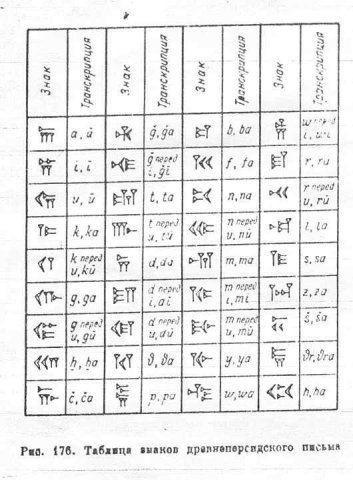 Знак Транскрипция Знак Транскрипция Знак Транскрипция Знак Транскрипция
𐎠 a, ā 𐎩 ǧ, ǧa 𐎲 b, ba 𐎻 w перед i, wi
𐎡 i, ī 𐎪 ǧ перед i, ǧi 𐎳 f, fa 𐎼 r, ra
𐎢 u, ū 𐎫 t, ta 𐎴 n, na 𐎽 r перед u, rŭ
𐎣 k, ka 𐎬 t перед u, tŭ 𐎵 n перед u, nŭ 𐎾 l, la
𐎤 k перед u, kŭ 𐎭 d, da 𐎶 m, ma 𐎿 s, sa
𐎥 g, ga 𐎮 d перед i, di 𐎷 m перед i, mi 𐏀 z, za
𐎦 g перед u, gŭ 𐎯 d перед u, dŭ 𐎸 m перед u, mŭ 𐏁 š, ša
𐎧 ḫ, ḫa 𐎰 ϑ, ϑa 𐎹 y, ya 𐏂 ϑr, ϑra
𐎨 č, ča 𐎱 p, pa 𐎺 w, wa 𐏃 h, ha
Рис. 176. Таблица знаков древнеперсидского письма